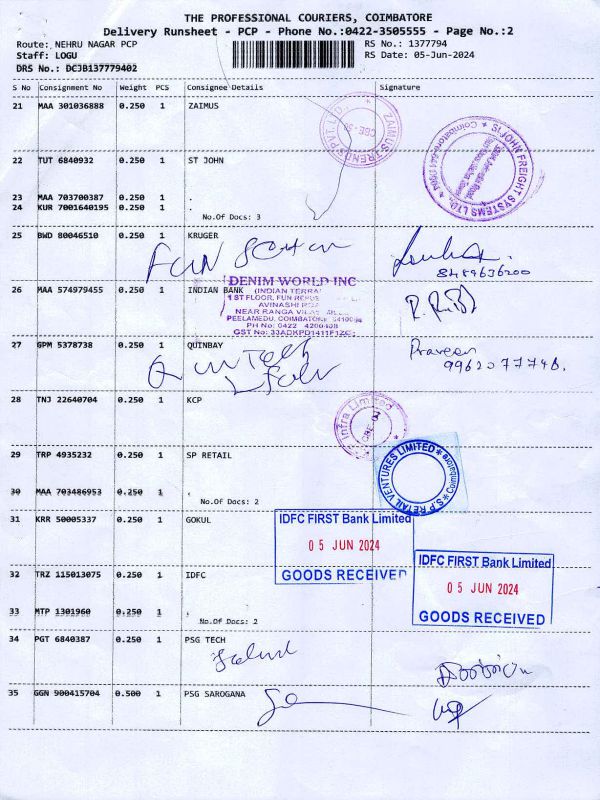 THE PROFESSIONAL COURIERS, COIMBATORE
Delivery Runsheet - PCP - Phone No.:0422-3505555 - Page No.:2
Route: NEHRU NAGAR PCP RS No.: 1377794
Staff: LOGU RS Date: 05-Jun-2024
DRS No.: DCJB137779402
S No Consignment No Weight PCS Consignee Details Signature
21 MAA 301036888 0.250 1 ZAIMUS
ZAIMUS TRENDS PVT. LTD.,
22 TUT 6840932 0.250 1 ST JOHN
ST.JOHN FREIGHT SYSTEMS LTD.,
23 MAA 703700387 0.250 1 .
24 KUR 7001640195 0.250 1 .
No.Of Docs: 3
25 BWD 80046510 0.250 1 KRUGER
FUN
8489636200
26 MAA 574979455 0.250 1 INDIAN BANK
DENIM WORLD INC
(INDIAN TERRA
1ST FLOOR, FUN
AVINASHI
NEAR RANGA
PEELAMEDU, COIMBATORE
PH No: 0422 4200408
GST No: 33ADKPD1411F1ZC
27 GPM 5378738 0.250 1 QUINBAY
Praveen
9962077748.
28 TNJ 22640704 0.250 1 KCP
Infra Limited
29 TRP 4935232 0.250 1 SP RETAIL
S.P RETAIL VENTURES LIMITED
Coimbatore
30 MAA 703486953 0.250 1 .
No.Of Docs: 2
31 KRR 50005337 0.250 1 GOKUL
IDFC FIRST Bank Limited
05 JUN 2024
GOODS RECEIVED
32 TRZ 115013075 0.250 1 IDFC
IDFC FIRST Bank Limited
05 JUN 2024
GOODS RECEIVED
33 MTP 1301960 0.250 1 .
No.Of Docs: 2
34 PGT 6840387 0.250 1 PSG TECH
35 GGN 900415704 0.500 1 PSG SAROGANA